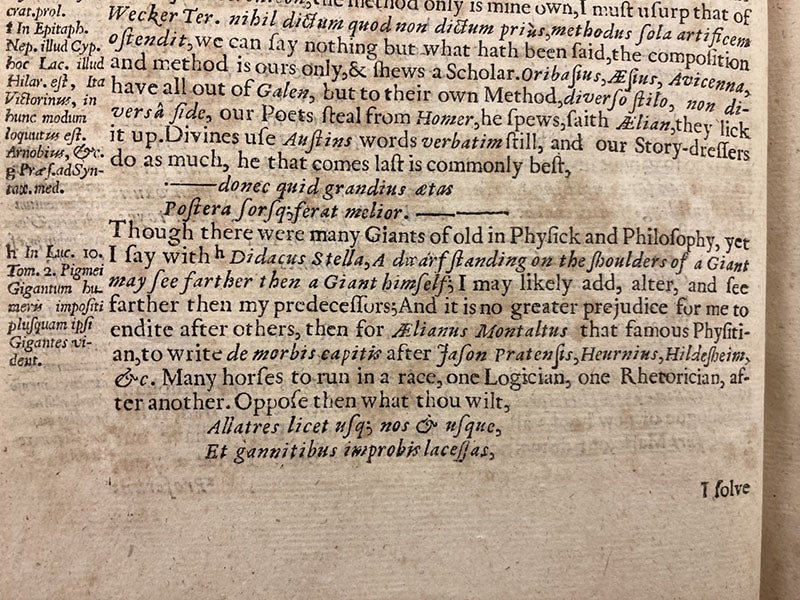 crat.prol.
f In Epitaph.
Nep. illud Cyp.
hoc Lac. illud
Hilar. est, Ita
Victorinus, in
hunc modum
loquutus est.
Arnobius, &c.
g Præf. ad Syn-
tax. med.
h In Luc. 10.
Tom. 2. Pigmei
Gigantum hu-
meris impositi
plusquam ipsi
Gigantes vi-
dent.
the method only is mine own, I muſt uſurp that of
Wecker Ter. nihil dictum quod non dictum prius, methodus ſola artificem
oſtendit, we can ſay nothing but what hath been ſaid, the compoſition
and method is ours only, & ſhews a Scholar. Oribaſius, Æſius, Avicenna,
have all out of Galen, but to their own Method, diverſo ſtilo, non di-
versâ fide, our Poets ſteal from Homer, he ſpews, ſaith Ælian, they lick
it up. Divines uſe Auſtins words verbatim ſtill, and our Story-dreſſers
do as much, he that comes laſt is commonly beſt,
——donec quid grandius ætas
Poſtera ſorsq; ferat melior. ————
Though there were many Giants of old in Phyſick and Philoſophy, yet
I ſay with h Didacus Stella, A dwarf ſtanding on the ſhoulders of a Giant
may ſee farther then a Giant himſelf; I may likely add, alter, and ſee
farther then my predeceſſors; And it is no greater prejudice for me to
endite after others, then for Ælianus Montaltus that famous Phyſiti-
an, to write de morbis capitis after Jaſon Pratenſis, Heurnius, Hildeſheim,
&c. Many horſes to run in a race, one Logician, one Rhetorician, af-
ter another. Oppoſe then what thou wilt,
Allatres licet uſq; nos & uſque,
Et gannitibus improbis laceſſas,
I ſolve